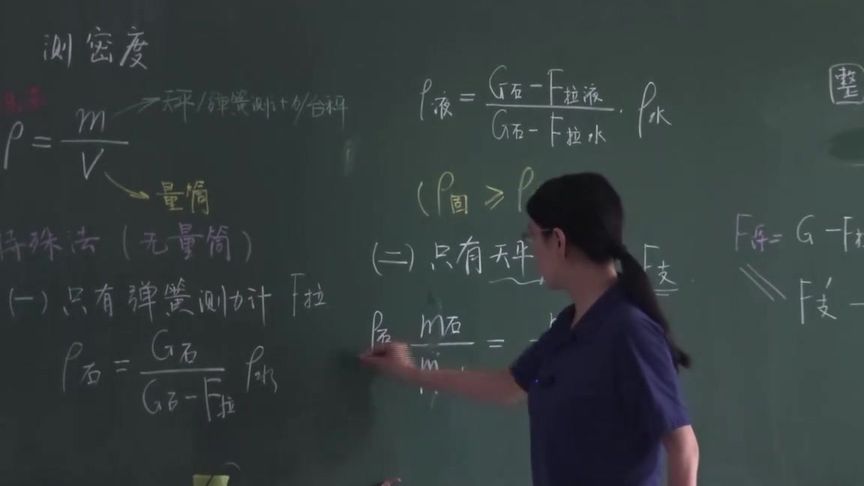 测密度
ρ = m/V
天平/弹簧测计力/台秤
量筒
特殊法(无量筒)
(一)只有弹簧测力计 F拉
ρ石 = G石/(G石-F拉) ρ水
ρ液 = (G石-F拉液)/(G石-F拉水) · ρ水
(ρ固 ≥ ρ
(二)只有天平 F支
ρ石 m石/m =
整
F浮= G-F拉
F支′